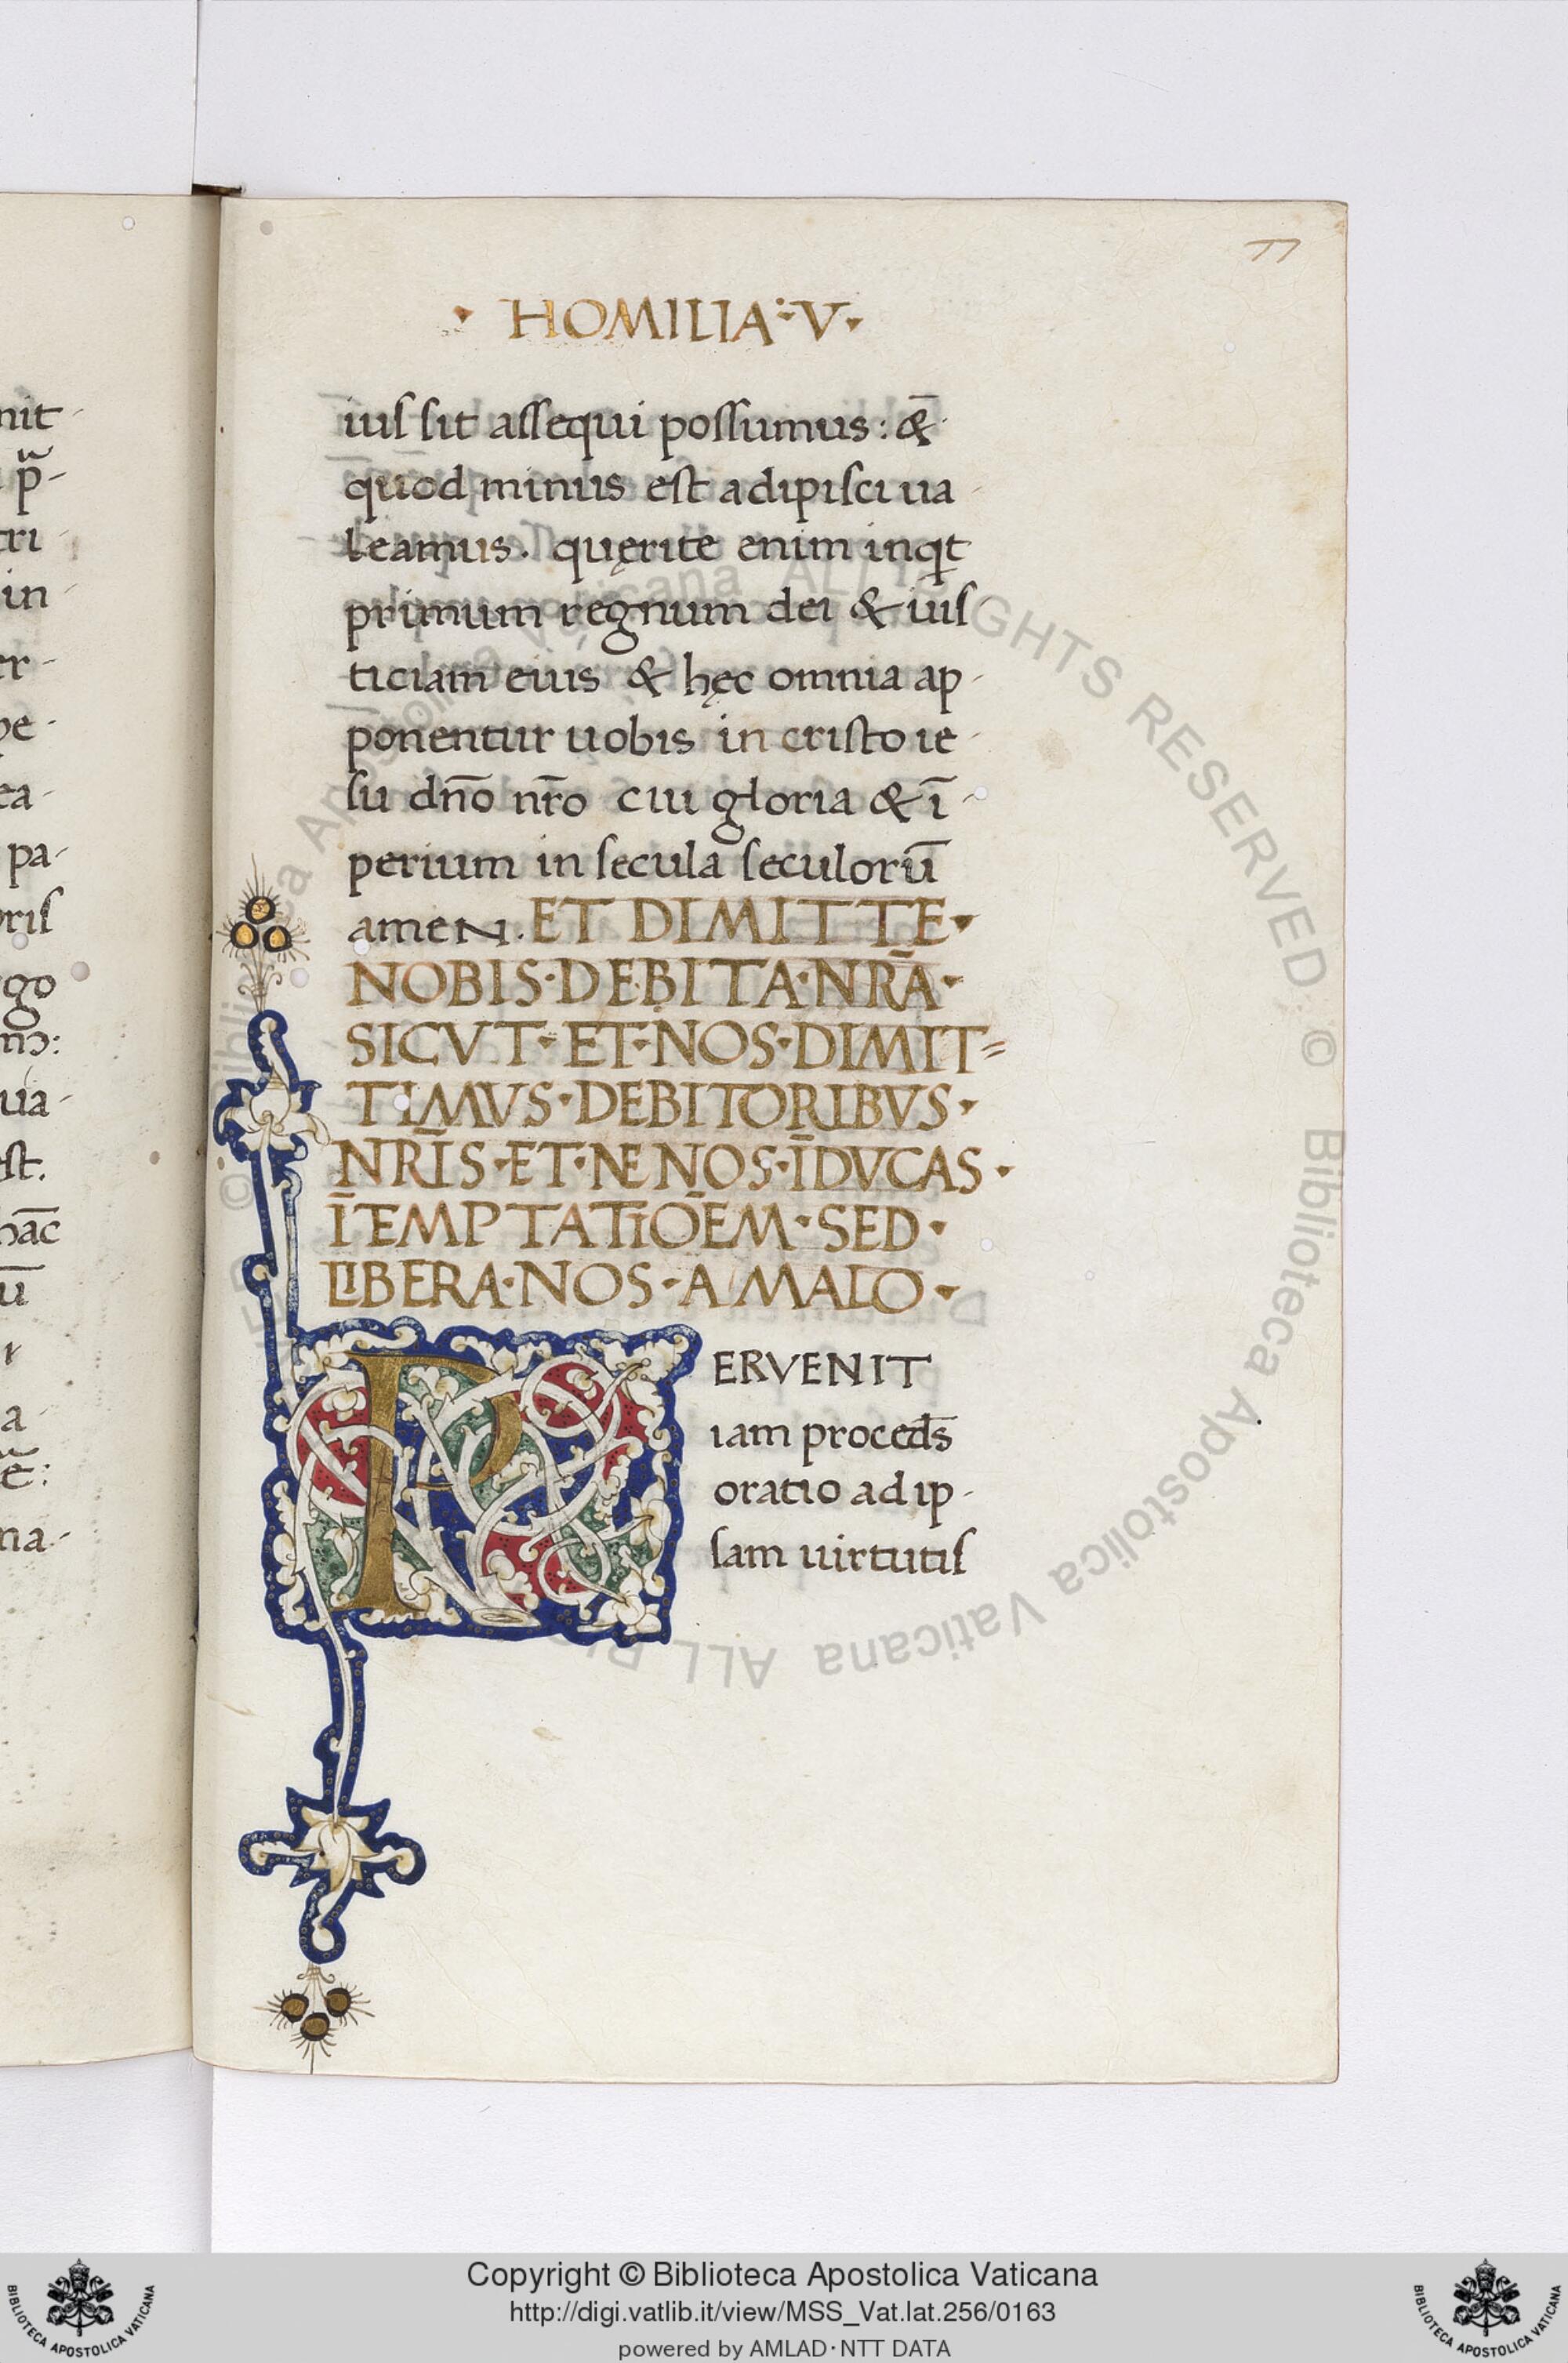 77
· HOMILIA · V ·
iuſ ſit aſſequi poſſumus : &̄
quod minus eſt adipiſci ua-
leamus. quęrite enim inqt
primum regnum dei & iuſ
ticiam eius & hęc omnia ap-
ponentur uobis in criſto ie-
ſu dn̄o nr̄o cui gloria & ī-
perium in ſecula ſeculorū
ameN. ET DIMITTE ·
NOBIS · DEBITA · NRĀ ·
SICVT · ET · NOS · DIMIT=
TIMVS · DEBITORIBVS ·
NRĪS · ET · NE NOS · ĪDVCAS ·
ĪTEMPTATIŌEM · SED ·
LIBERA · NOS · A MALO ·
PERVENIT
iam proced̄s
oratio ad ip-
ſam uirtutiſ
nit-
p-
tri
in-
er-
pe-
ea-
pa-
oriſ
go
ua-
eſt.
hāc
ū
r
a-
ē:
na-
Copyright © Biblioteca Apostolica Vaticana
http://digi.vatlib.it/view/MSS_Vat.lat.256/0163
powered by AMLAD · NTT DATA
BIBLIOTECA APOSTOLICA VATICANA
BIBLIOTECA APOSTOLICA VATICANA
© Biblioteca Apostolica Vaticana ALL RIGHTS RESERVED © Biblioteca Apostolica Vaticana ALL RIGHTS RESERVED